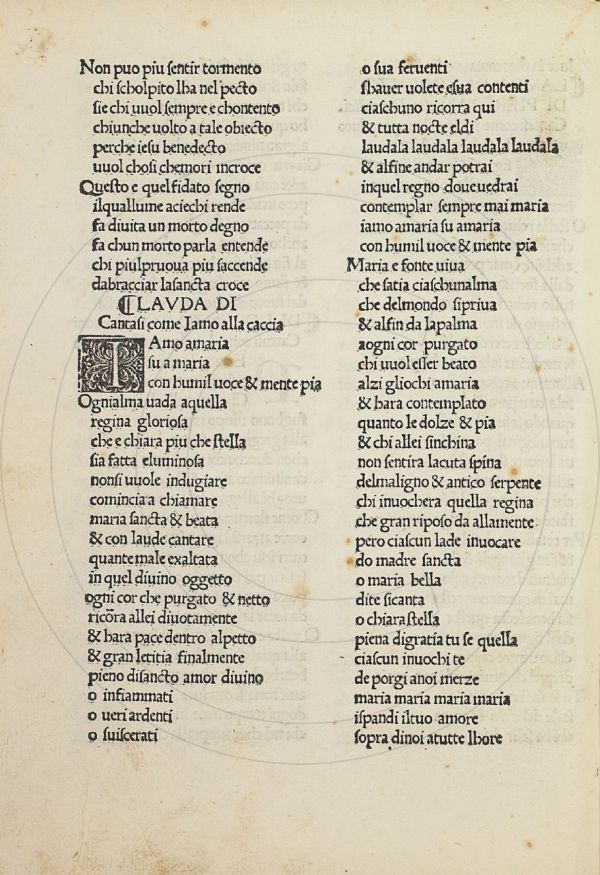 Non puo piu ſentir tormento
chi ſcholpito lha nel pecto
ſie chi uuol ſempre e chontento
chiunche uolto a tale obiecto
perche ieſu benedecto
uuol choſi chemori incroce
Queſto e quel fidato ſegno
ilquallume aciechi rende
fa diuita un morto degno
fa chun morto parla entende
chi piulpruoua piu ſaccende
dabracciar laſancta croce
⸿LAVDA DI
Cantaſi come Iamo alla caccia
IAmo amaria
ſu a maria
con humil uoce & mente pia
Ognialma uada aquella
regina glorioſa
che e chiara piu che ſtella
ſia fatta eluminoſa
nonſi uuole indugiare
comincia a chiamare
maria ſancta & beata
& con laude cantare
quante male exaltata
in quel diuino oggetto
ogni cor che purgato & netto
ricorra allei diuotamente
& hara pace dentro alpetto
& gran letitia finalmente
pieno diſancto amor diuino
o infiammati
o ueri ardenti
o ſuiſcerati
o ſua feruenti
ſhauer uolete eſua contenti
ciaſchuno ricorra qui
& tutta nocte eldi
laudala laudala laudala laudala
& alfine andar potrai
inquel regno doueuedrai
contemplar ſempre mai maria
iamo amaria ſu amaria
con humil uoce & mente pia
Maria e fonte uiua
che ſatia ciaſchunalma
che delmondo ſipriua
& alfin da lapalma
aogni cor purgato
chi uuol eſſer beato
alzi gliochi amaria
& hara contemplato
quanto le dolze & pia
& chi allei ſinchina
non ſentira lacuta ſpina
delmaligno & antico ſerpente
chi inuochera quella regina
che gran ripoſo da allamente
pero ciaſcun lade inuocare
do madre ſancta
o maria bella
dite ſicanta
o chiara ſtella
piena digratia tu ſe quella
ciaſcun inuochi te
de porgi anoi merze
maria maria maria maria
iſpandi iltuo amore
ſopra dinoi atutte lhore